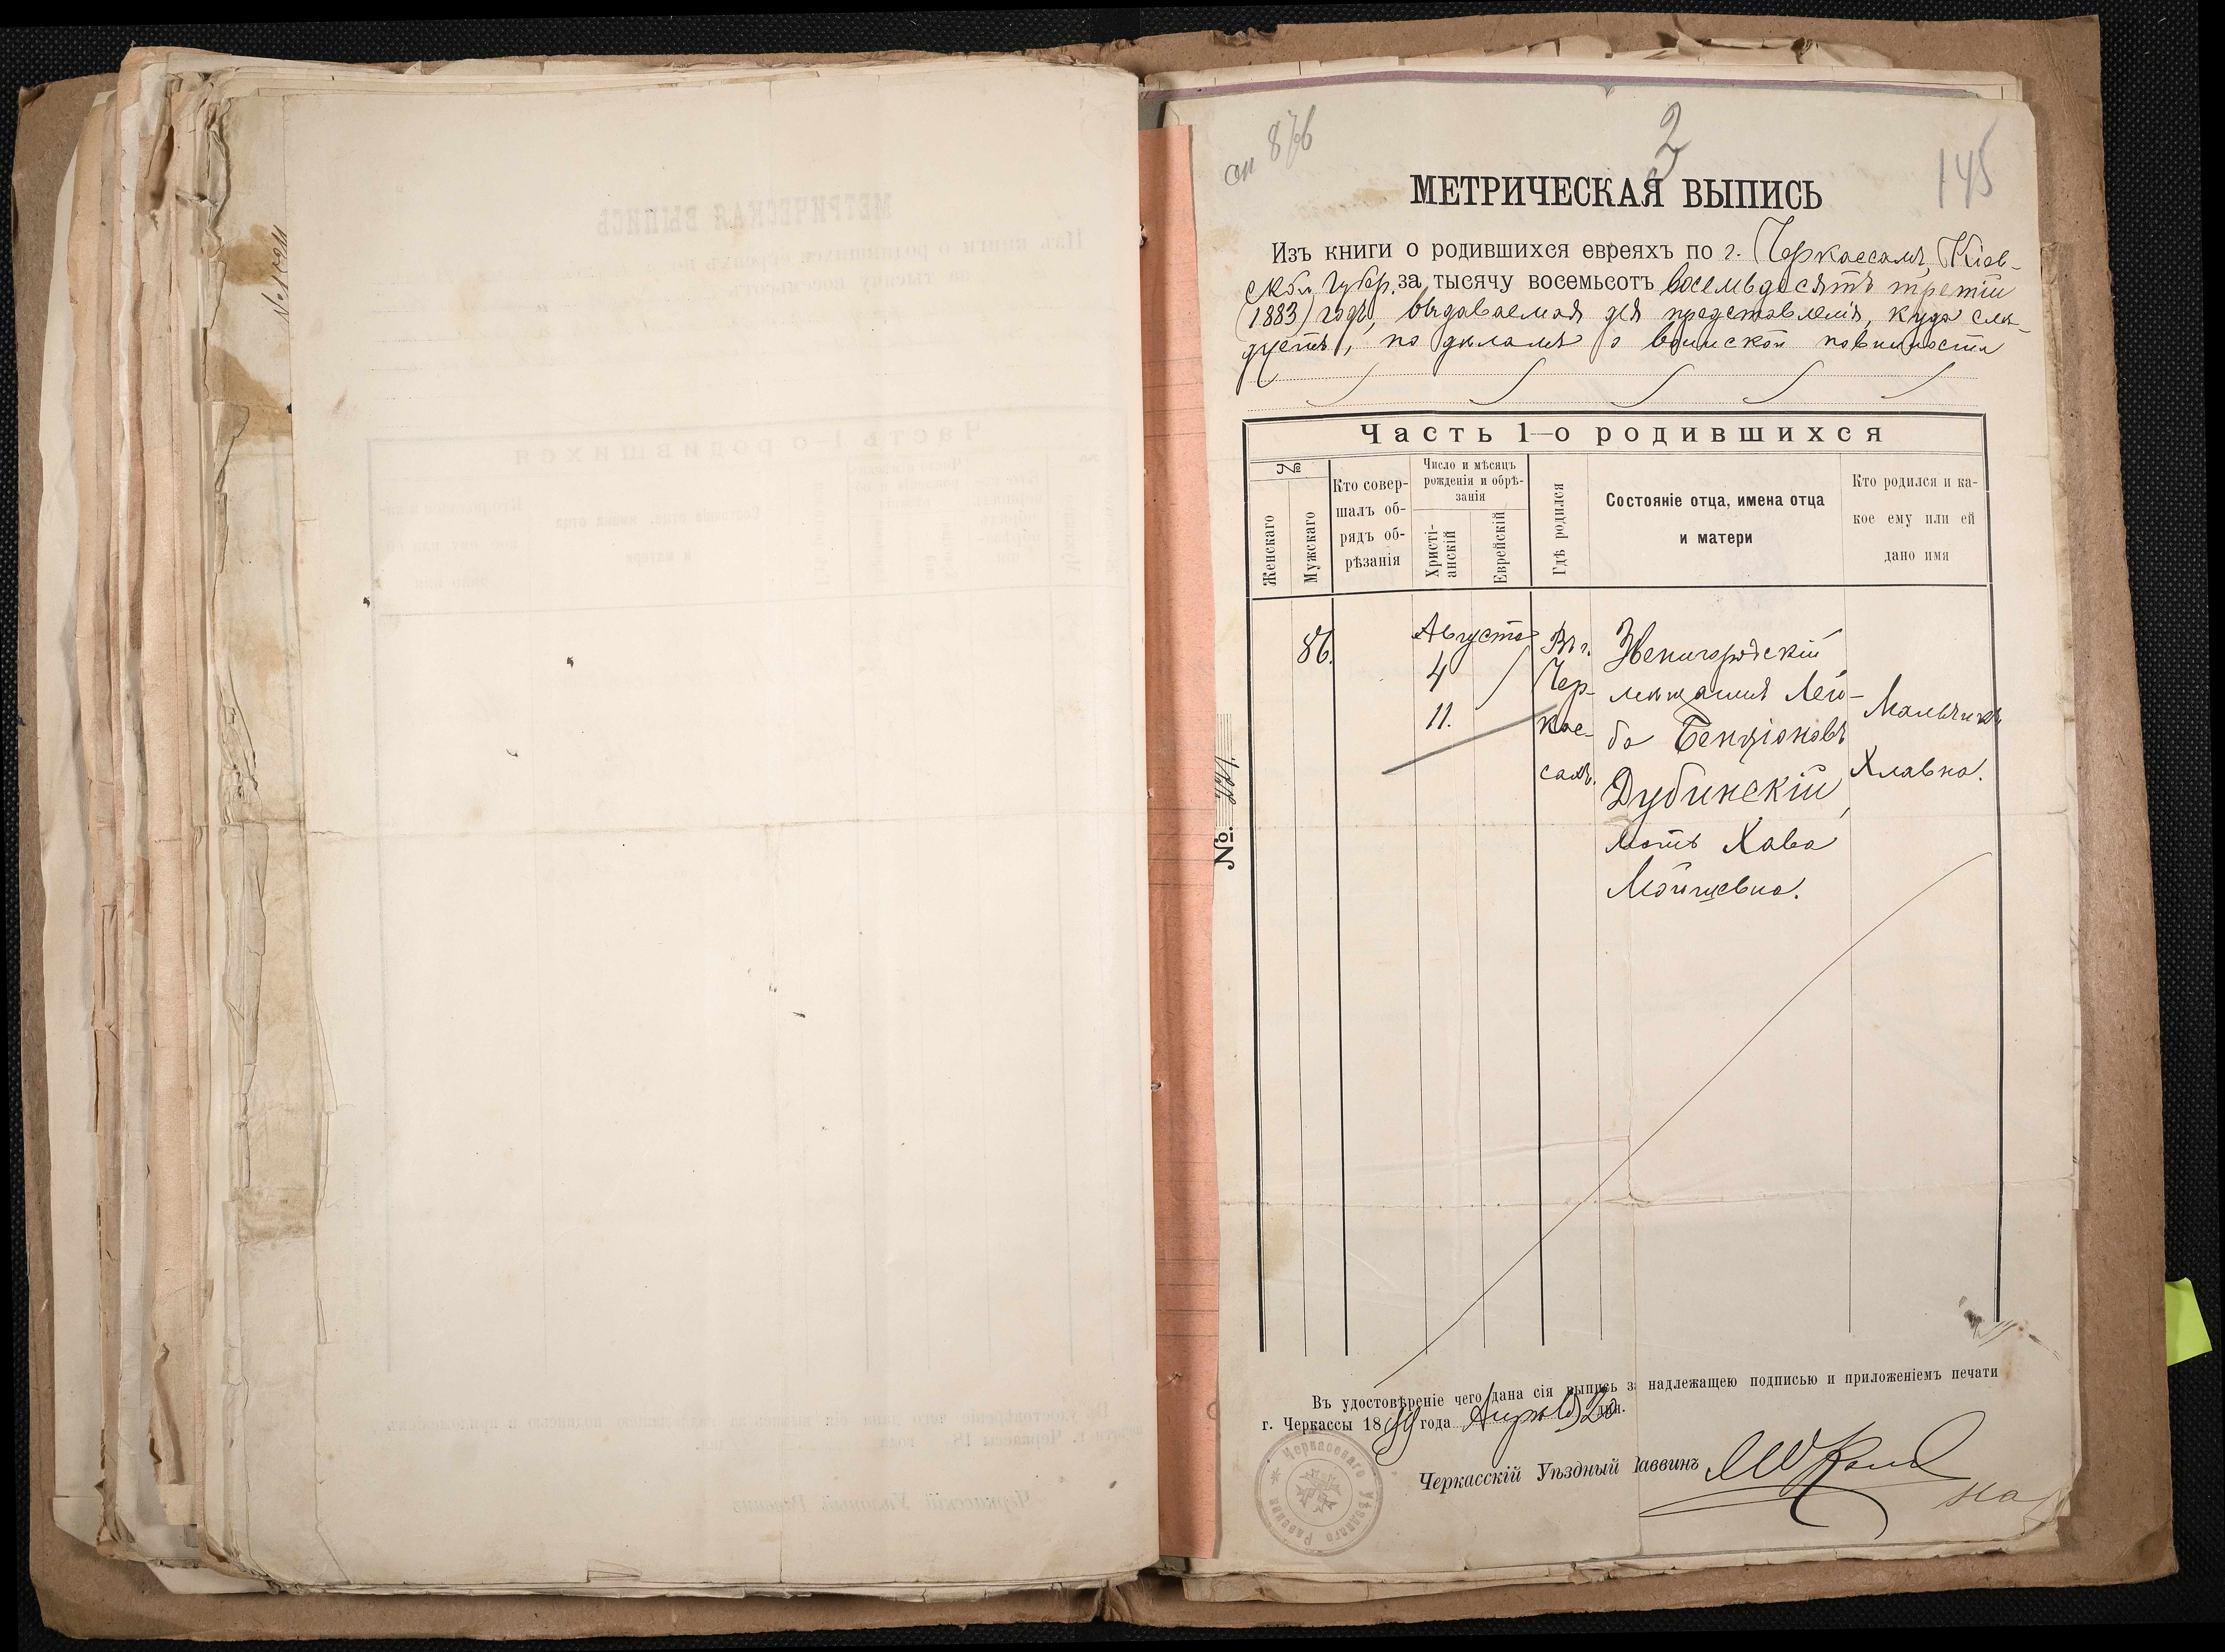 оп 876
3
145
МЕТРИЧЕСКАЯ ВЫПИСЬ
Изъ книги о родившихся евреяхъ по г. Черкассамъ, Кіев-
ской Губер. за тысячу восемьсотъ восемьдесятъ третій
(1883) годъ, выдаваемая для представленія, куда слѣ-
дуетъ, по дѣламъ о воинской повинности
Часть 1—о родившихся
№
Женскаго
Мужскаго
Кто совер-
шалъ об-
рядъ об-
рѣзанія
Число и мѣсяцъ
рожденія и обрѣ-
занія
Христі-
анскій
Еврейскій
Гдѣ родился
Состояніе отца, имена отца
и матери
Кто родился и ка-
кое ему или ей
дано имя
86.
Августа
4
11.
Въ г.
Чер-
кас-
сахъ.
Звенигородскій
мѣщанинъ Лей-
ба Бенціоновъ
Дубинскій,
мать Хава
Мойшевна.
Мальчикъ
Хлавна.
№.
Въ удостовѣреніе чего дана сія выпись за надлежащею подписью и приложеніемъ печати
г. Черкассы 1899 года Апрѣля 20 дня.
Черкасскій Уѣздный Раввинъ
Черкасскаго Уѣзднаго Раввина